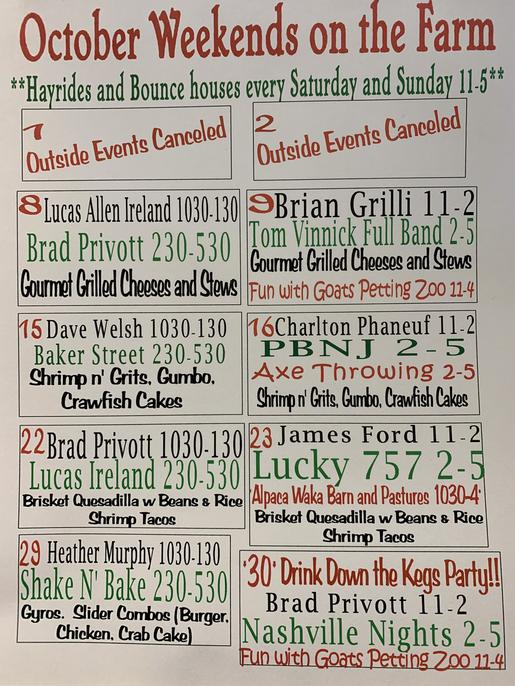 October Weekends on the Farm
**Hayrides and Bounce houses every Saturday and Sunday 11-5**
1
Outside Events Canceled
2
Outside Events Canceled
8 Lucas Allen Ireland 1030-130
Brad Privott 230-530
Gourmet Grilled Cheeses and Stews
9 Brian Grilli 11-2
Tom Vinnick Full Band 2-5
Gourmet Grilled Cheeses and Stews
Fun with Goats Petting Zoo 11-4
15 Dave Welsh 1030-130
Baker Street 230-530
Shrimp n' Grits, Gumbo,
Crawfish Cakes
16 Charlton Phaneuf 11-2
PBNJ 2-5
Axe Throwing 2-5
Shrimp n' Grits, Gumbo, Crawfish Cakes
22 Brad Privott 1030-130
Lucas Ireland 230-530
Brisket Quesadilla w Beans & Rice
Shrimp Tacos
23 James Ford 11-2
Lucky 757 2-5
Alpaca Waka Barn and Pastures 1030-4
Brisket Quesadilla w Beans & Rice
Shrimp Tacos
29 Heather Murphy 1030-130
Shake N' Bake 230-530
Gyros. Slider Combos (Burger,
Chicken, Crab Cake)
'30' Drink Down the Kegs Party!!
Brad Privott 11-2
Nashville Nights 2-5
Fun with Goats Petting Zoo 11-4